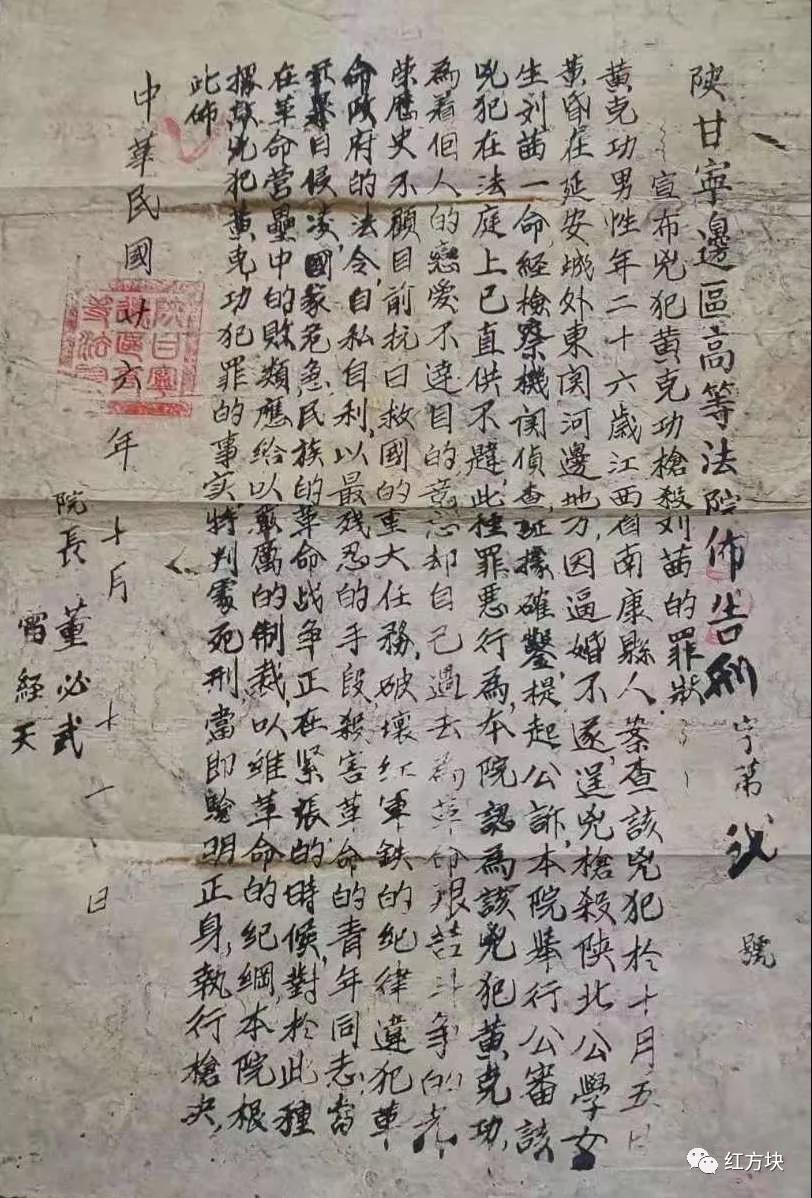 陝甘寧邊區高等法院佈告刑字第 號
宣布兇犯黄克功槍殺刘茜的罪狀
黄克功男性年二十六歲江西省南康縣人,案查該兇犯於十月五日
黄昏在延安城外東関河邊地方,因逼婚不遂,逞兇槍殺陕北公學女
生刘茜一命,經檢察機関偵查,証據確鑿,提起公訴,本院举行公審,該
兇犯在法庭上已直供不諱,此種罪恶行為,本院認為該兇犯黄克功,
為着個人的戀爱不達目的,竟忘却自己過去為革命艰苦斗争的光
荣歷史,不顧目前抗日救國的重大任務,破壞红軍鉄的纪律,違犯革
命政府的法令,自私自利,以最残忍的手段殺害革命的青年同志,當
日候凌,國家危急,民族的革命战争正在緊張的時候,對於此種
在革命营壘中的敗類,應给以嚴厲的制裁,以維革命的纪綱,本院根
據該兇犯黄克功犯罪的事实,特判處死刑,當即驗明正身,執行槍决,
此佈
中華民國廿六年十月十一日
院長 董必武
雷經天
陝甘寧邊區高等法院
红方块